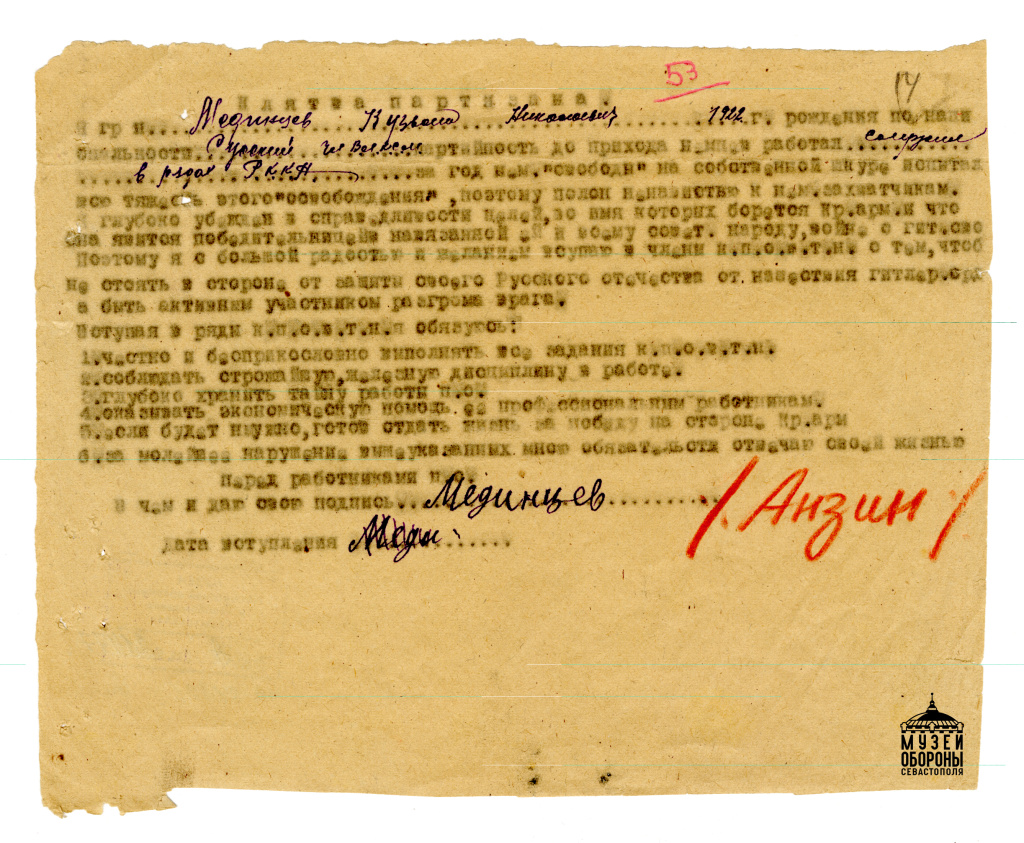 53
14
Клятва партизана.
Я гр-н....Мединцев Кузьма Николаевич 1922 г. рождения по наци
ональности Русский чл ВЛКСМ партийность до прихода немцев работал
в рядах РККА за год нем."свободы" на собственной шкуре испытал
всю тяжесть этого "освобождения",поэтому полон ненавистью к нем.захватчикам.
Я глубоко убежден в справедливости целей,во имя которых борется Кр.арм.и что
она явится победительницей в навязанной ей и всему совет. народу,войне с
Поэтому я с большой радостью и желанием вступаю в члены к.п.о.в.т.н. с тем,чтоб
не стоять в стороне от защиты своего Русского отечества от нашествия гитлер.орд
а быть активным участником разгрома врага.
Вступая в ряды к.п.о.в.т.н.я обязуюсь:
1.честно и бесприкословно выполнять все задания к.п.о.в.т.н.
2.соблюдать строжайшую,железную дисциплину в работе.
3.глубоко хранить тайну работы п.о.
4.оказывать экономическую помощь профессиональным работникам.
5.если будет нужно,готов отдать жизнь за победу на стороне Кр.арм
6.за малейшее нарушение вышеуказанных мною обязательств отвечаю своей жизнью
перед работниками п.о.
В чем и даю свою подпись...Мединцев..........
/Анзин/
Дата вступления ........
МУЗЕЙ
ОБОРОНЫ
СЕВАСТОПОЛЯ